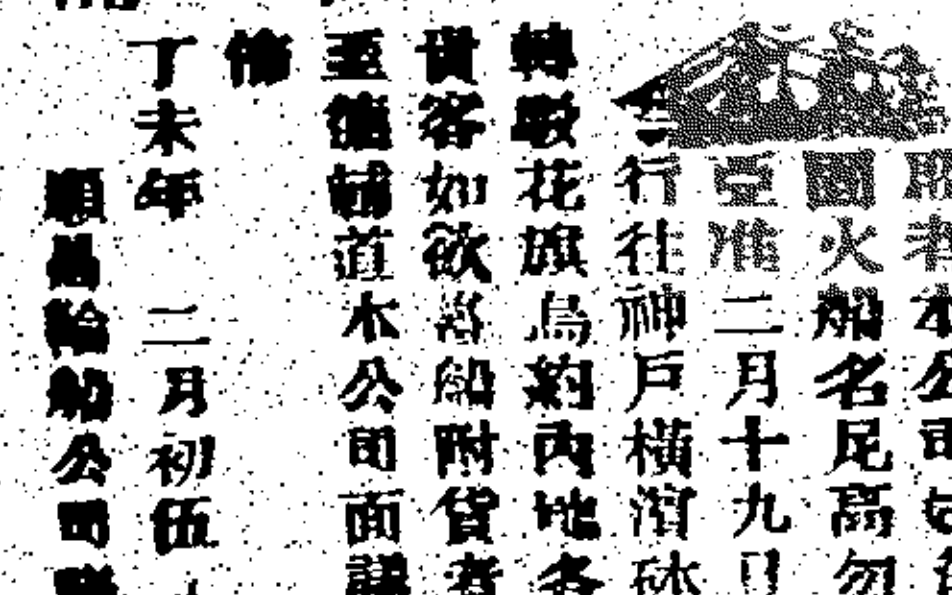 者本公司
國火船名尾高勿
亞准二月十九日
行往神戶橫濱砵
轉駁花旗鳥約內地各
貴客如欲落船附貨者
至德輔道本公司面議
丁未年 二月初伍
順昌輪船公司